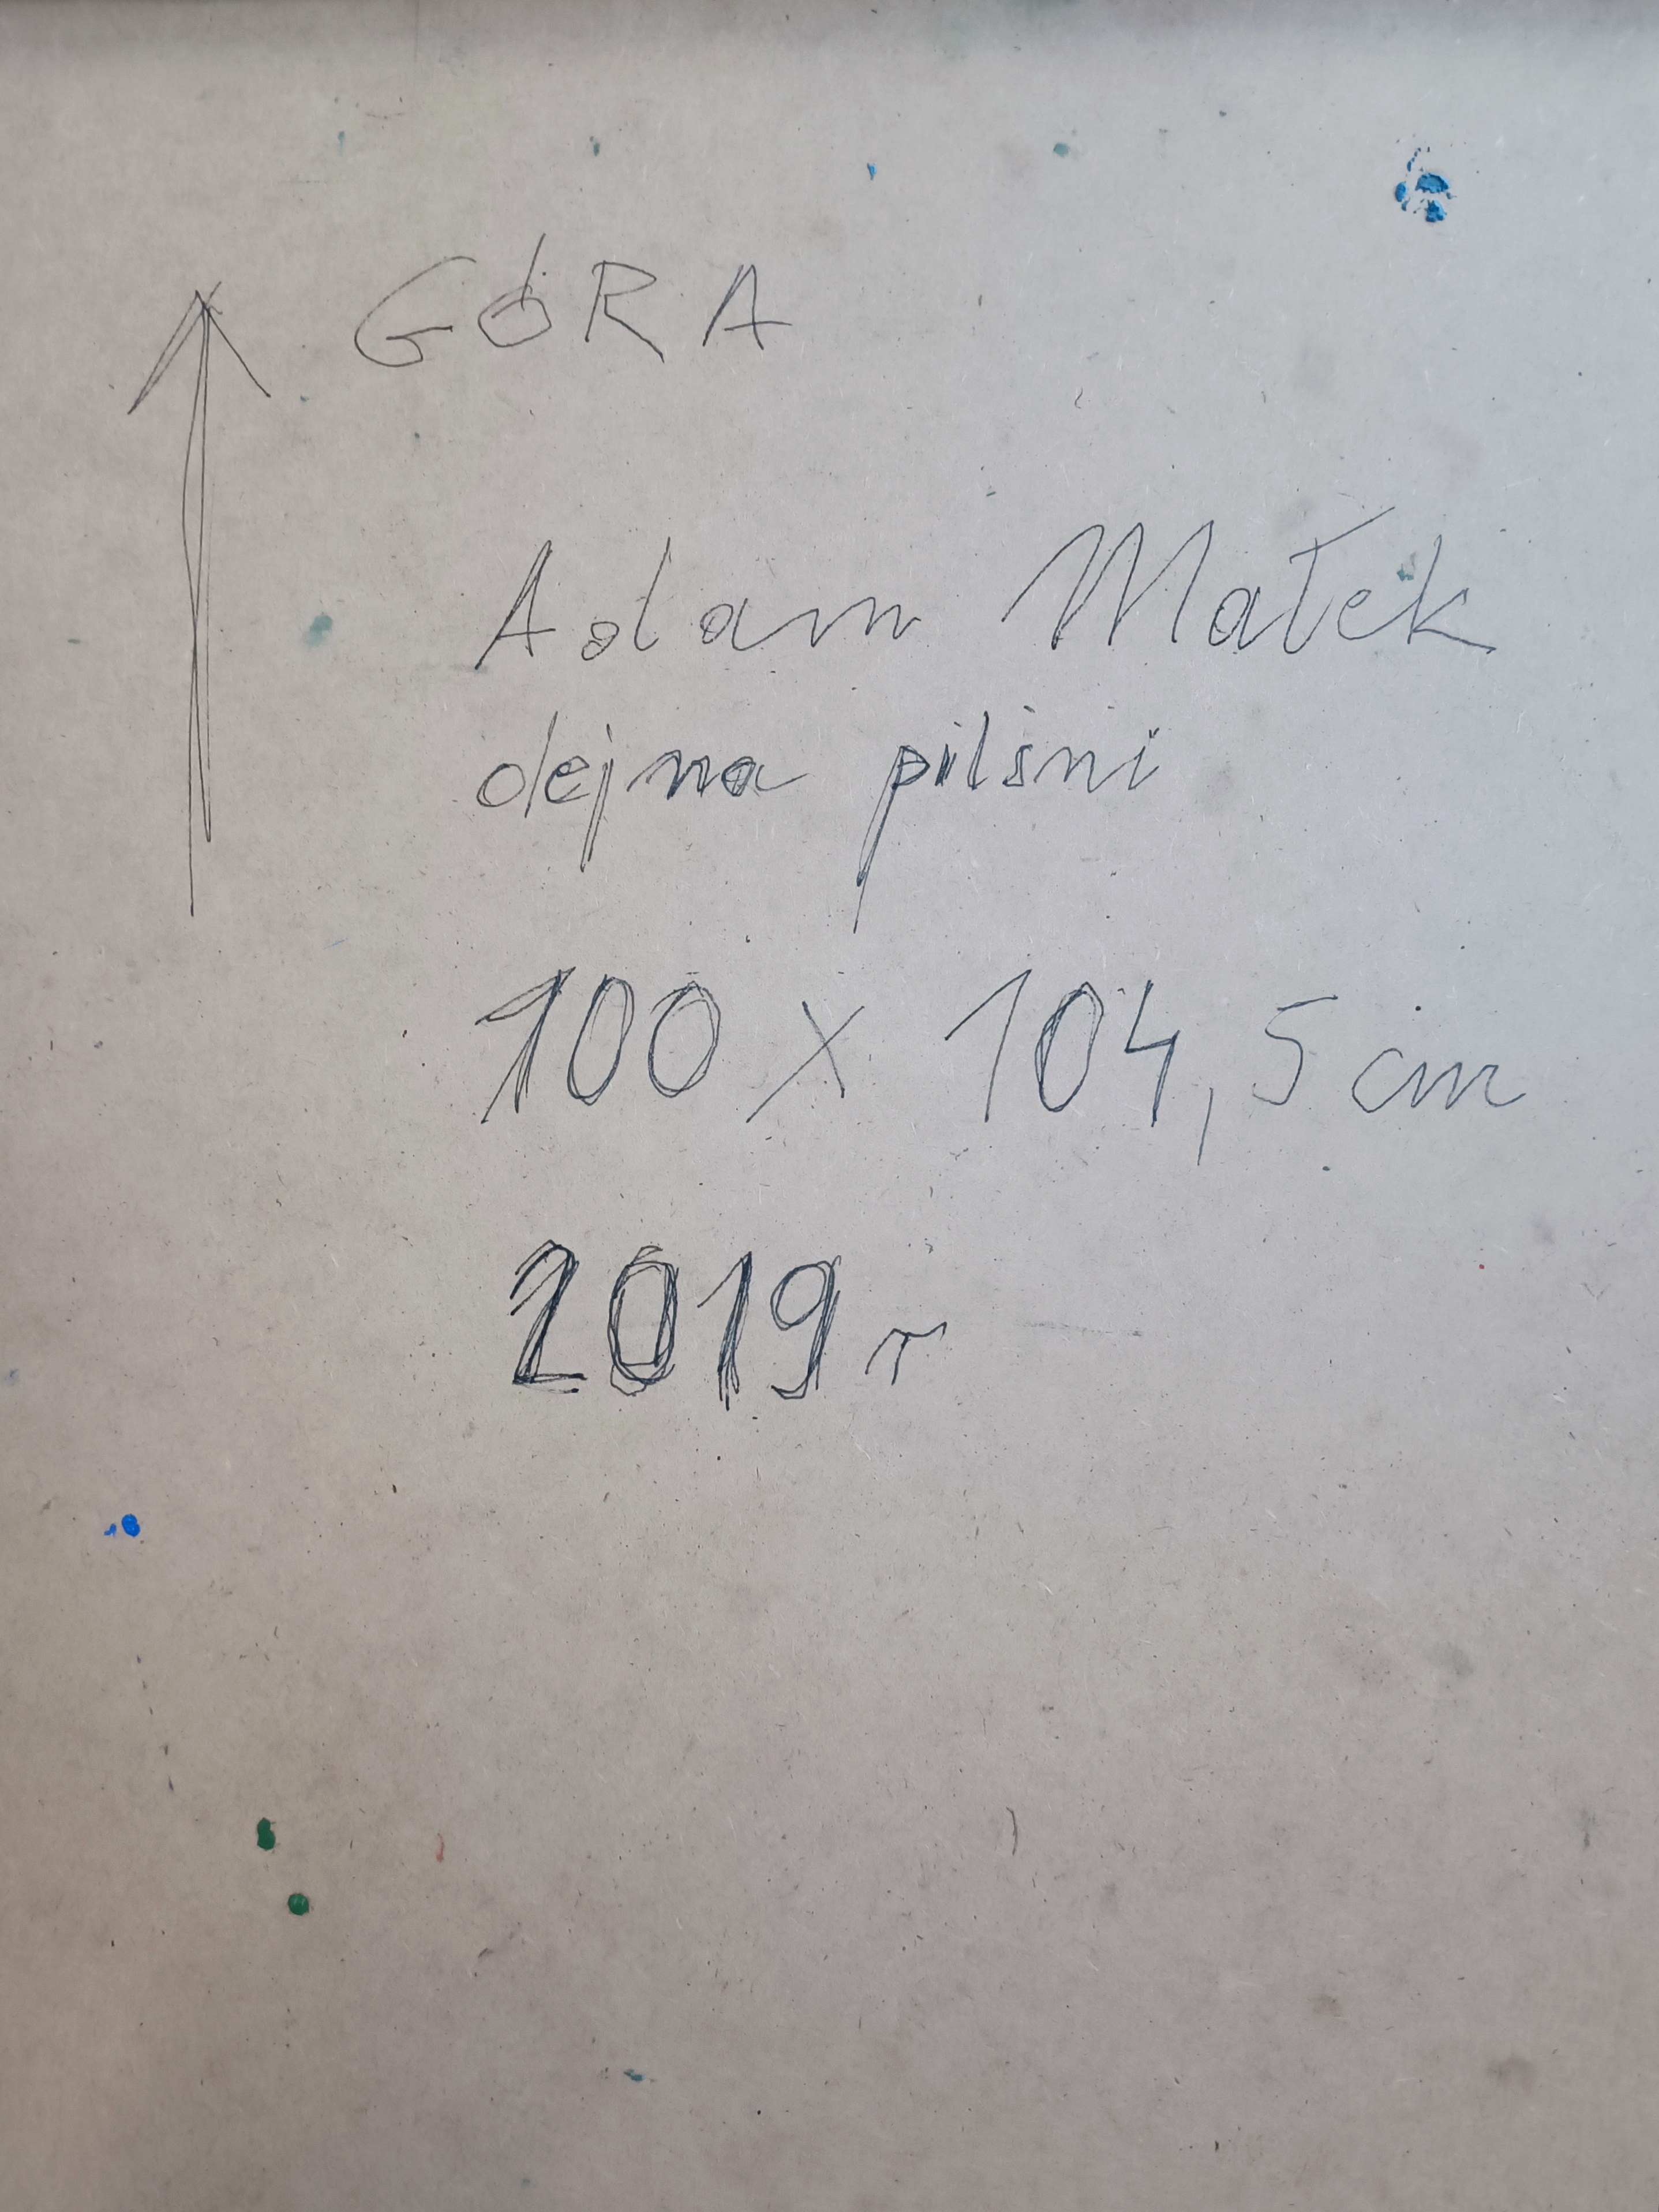 GÓRA
Adam Małek
olej na pilśni
100 x 104,5 cm
2019 r